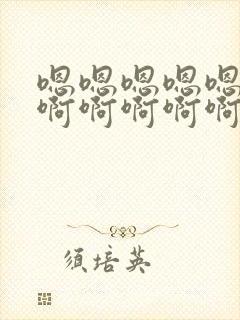 嗯嗯嗯嗯嗯
啊啊啊啊啊
须培英